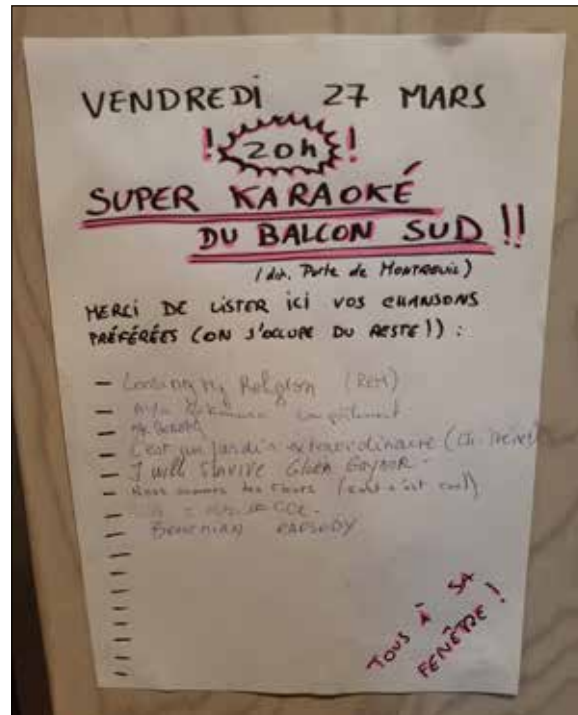 VENDREDI 27 MARS
! 20h !
SUPER KARAOKÉ
DU BALCON SUD !!
Porte de MONTREUIL)
MERCI DE LISTER ICI VOS CHANSONS
PRÉFÉRÉES (ON S'OCCUPE DU RESTE!) :
- Loosing my Religion (REM)
-
- C'est un jardin extraordinaire (Ch.
- I will Survive Gloria Gaynor -
- Nous sommes
-
- BOHEMIAN RAPSODY
TOUS À SA
FENÊTRE !